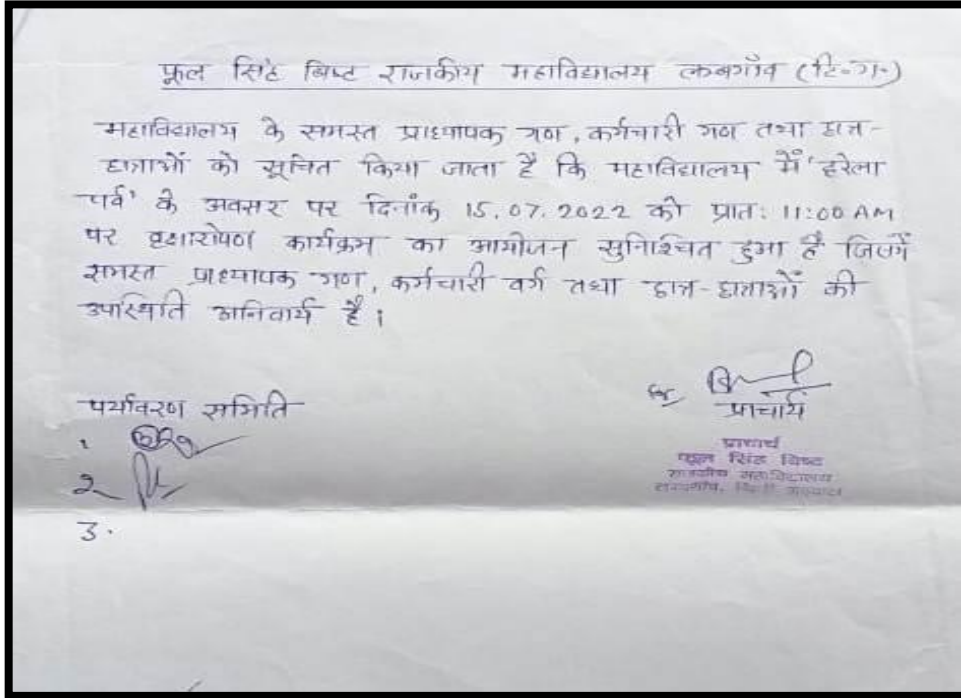 फूल सिंह बिष्ट राजकीय महाविद्यालय लम्बगाँव (टि०ग०)
महाविद्यालय के समस्त प्राध्यापक गण, कर्मचारी गण तथा छात्र-
छात्राओं को सूचित किया जाता है कि महाविद्यालय में 'हरेला
पर्व' के अवसर पर दिनांक 15.07.2022 को प्रात: 11:00 AM
पर वृक्षारोपण कार्यक्रम का आयोजन सुनिश्चित हुआ है जिसमें
समस्त प्राध्यापक गण, कर्मचारी वर्ग तथा छात्र-छात्राओं की
उपस्थिति अनिवार्य है।
पर्यावरण समिति
1
2
3.
प्राचार्य
प्राचार्य
फूल सिंह बिष्ट
राजकीय महाविद्यालय